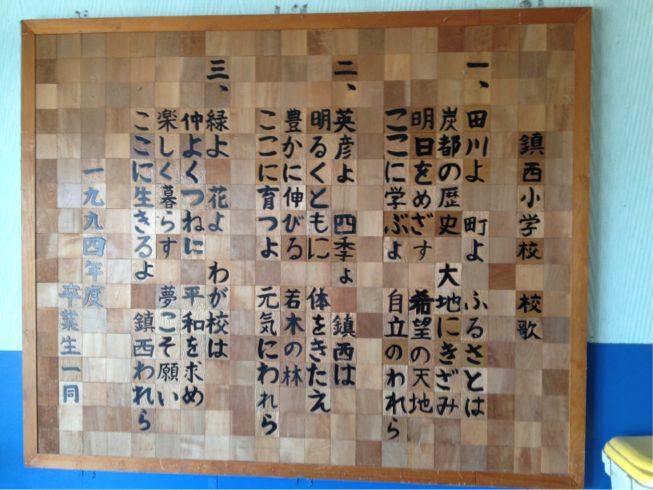 鎮西小学校 校歌
一、田川よ 町よ ふるさとは
炭都の歴史 大地にきざみ
明日をめざす 希望の天地
ここに学ぶよ 自立のわれら
二、英彦よ 四季よ 鎮西は
明るくともに 体をきたえ
豊かに伸びる 若木の林
ここに育つよ 元気にわれら
三、緑よ 花よ わが校は
仲よくつねに 平和を求め
楽しく暮らす 夢こそ願い
ここに生きるよ 鎮西われら
一九九四年度
卒業生一同